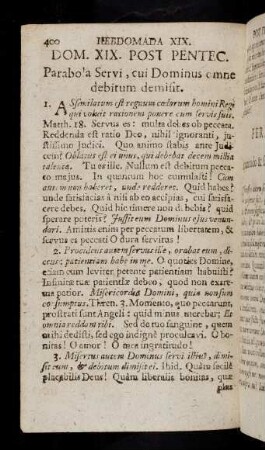 400 HEBDOMADA XIX.
DOM. XIX. POST PENTEC.
Parabola Servi, cui Dominus omne
debitum demisit.
1. ASsimilatum est regnum cœlorum homini Regi
qui voluit rationem ponere cum servis suis.
Matth. 18. Servus es: multa debes ob peccata.
Reddenda est ratio Deo, nihil ignoranti, ju-
stissimo Judici. Quo animo stabis ante Judi-
cem? Oblatus est ei unus, qui debebat decem millia
talenta. Tu es ille. Nullum est debitum pecca-
to majus. In quantum hoc cumulasti! Cum
autem non haberet, unde redderet. Quid habes?
unde satisfacias à nisi ab eo accipias, cui satisfa-
cere debes. Quid hic timere non debebis? quid
sperare poteris? Jussit eum Dominus ejus venun-
dari. Amittis enim per peccatum libertatem, &
servus es peccati O dura servitus!
2. Procidens autem servus ille, orabat eum, di-
cens; patientiam habe in me. O quoties Domine,
etiam cum leviter petente patientiam habuisti?
Infinita tuæ patientiæ debeo, quod non exare-
mus potior. Misericordiæ Domini, quia non sumus
consumptus. Thren. 3. Momento, quo peccarunt,
prostrati sunt Angeli: quid minus merebar; Et
omnia reddam tibi. Sed de tuo sanguine, quem
mihi dedisti, sed ego indignè proculcavi. O bo-
nitas! O amor! O mea ingratitudo!
3. Misertus autem Dominus servi illius, dimi-
sit eum, & debitum dimisit ei. Ibid. Quàm facilè
placabilis Deus! Quàm liberalis bonitas, quæ
plus